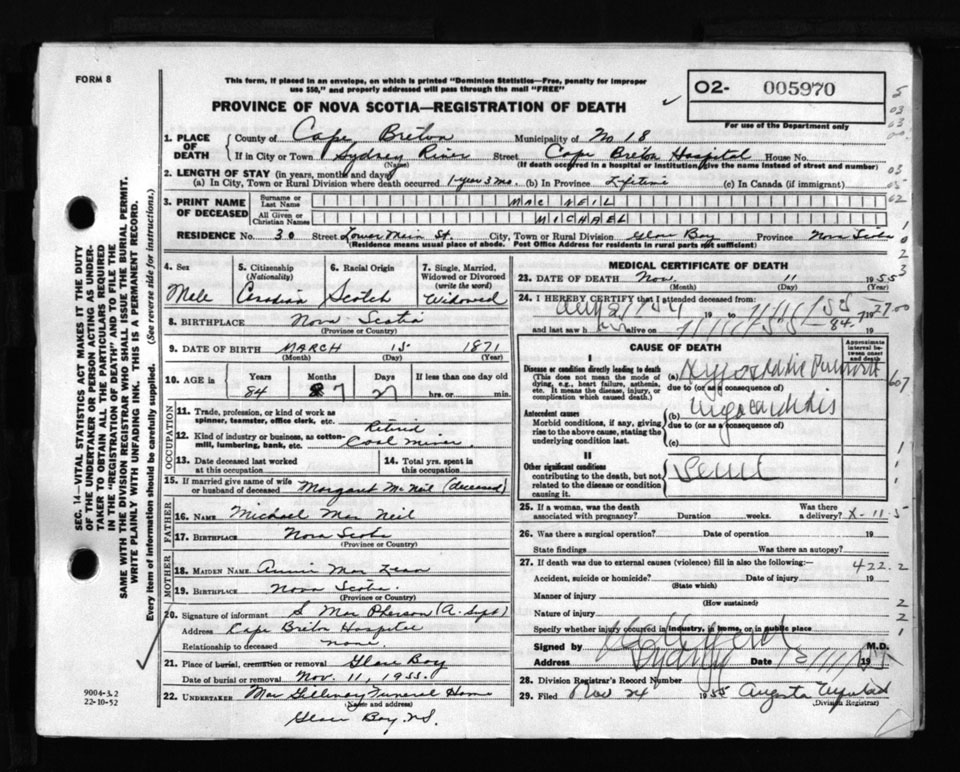 FORM 8
This form, if placed in an envelope, on which is printed "Dominion Statistics—Free, penalty for improper
use $50," and properly addressed will pass through the mail "FREE"
PROVINCE OF NOVA SCOTIA—REGISTRATION OF DEATH
02- 005970
For use of the Department only
SEC. 14—VITAL STATISTICS ACT MAKES IT THE DUTY
OF THE UNDERTAKER OR PERSON ACTING AS UNDER-
TAKER TO OBTAIN ALL THE PARTICULARS REQUIRED
IN THE "REGISTRATION OF DEATH" AND TO FILE THE
SAME WITH THE DIVISION REGISTRAR WHO SHALL ISSUE THE BURIAL PERMIT.
WRITE PLAINLY WITH UNFADING INK. THIS IS A PERMANENT RECORD.
Every item of information should be carefully supplied. (See reverse side for instructions.)
1. PLACE OF DEATH { County of Cape Breton Municipality of No 18
If in City or Town Sydney River Street Cape Breton Hospital House No.
(Name) (If death occurred in a hospital or institution, give the name instead of street and number)
2. LENGTH OF STAY (in years, months and days)
(a) In City, Town or Rural Division where death occurred 1 year 3 mo. (b) In Province Lifetime (c) In Canada (if immigrant)
3. PRINT NAME OF DECEASED { Surname or Last Name MAC NEIL
All Given or Christian Names MICHAEL
RESIDENCE No. 30 Street Lower Main St. City, Town or Rural Division Glace Bay Province Nova Scotia
(Residence means usual place of abode. Post Office Address for residents in rural parts not sufficient)
4. Sex Male
5. Citizenship (Nationality) Canadian
6. Racial Origin Scotch
7. Single, Married, Widowed or Divorced (write the word) Widowed
8. BIRTHPLACE Nova Scotia
(Province or Country)
9. DATE OF BIRTH MARCH 15 1871
(Month) (Day) (Year)
10. AGE in { Years 84 Months 7 Days 27 If less than one day old hrs. or min.
OCCUPATION
11. Trade, profession, or kind of work as spinner, teamster, office clerk, etc. Retired
12. Kind of industry or business, as cotton-mill, lumbering, bank, etc. Coal Miner
13. Date deceased last worked at this occupation
14. Total yrs. spent in this occupation
15. If married give name of wife or husband of deceased Margaret McNeil (deceased)
FATHER
16. NAME Michael Mac Neil
17. BIRTHPLACE Nova Scotia
(Province or Country)
MOTHER
18. MAIDEN NAME Annie Mac Lean
19. BIRTHPLACE Nova Scotia
(Province or Country)
20. Signature of informant S Mac Pherson (A. Supt)
Address Cape Breton Hospital
Relationship to deceased none
21. Place of burial, cremation or removal Glace Bay
Date of burial or removal Nov. 11, 1955.
22. UNDERTAKER Mac Gillivray Funeral Home
(Name and address)
Glace Bay N.S.
9004-3.2
22-10-52
MEDICAL CERTIFICATE OF DEATH
23. DATE OF DEATH Nov. 11 1955
(Month) (Day)
24. I HEREBY CERTIFY that I attended deceased from:
19 to 19
and last saw h alive on 19
CAUSE OF DEATH
Approximate interval between onset and death
I
Disease or condition directly leading to death
(This does not mean the mode of dying, e.g., heart failure, asthenia, etc. It means the disease, injury, or complication which caused death.)
(a)
due to (or as a consequence of)
Antecedent causes
Morbid conditions, if any, giving rise to the above cause, stating the underlying condition last.
(b) Myocarditis
due to (or as a consequence of)
(c)
II
Other significant conditions
contributing to the death, but not related to the disease or condition causing it.
25. If a woman, was the death associated with pregnancy? Duration weeks. Was there a delivery?
26. Was there a surgical operation? Date of operation 19
State findings Was there an autopsy?
27. If death was due to external causes (violence) fill in also the following:—
422.2
Accident, suicide or homicide? Date of injury 19
(State which)
Manner of injury
(How sustained)
Nature of injury
Specify whether injury occurred in industry, in home, or in public place
Signed by M.D.
Address Sydney Date 19
28. Division Registrar's Record Number
29. Filed Nov 24 1955 Augusta
(Division Registrar)